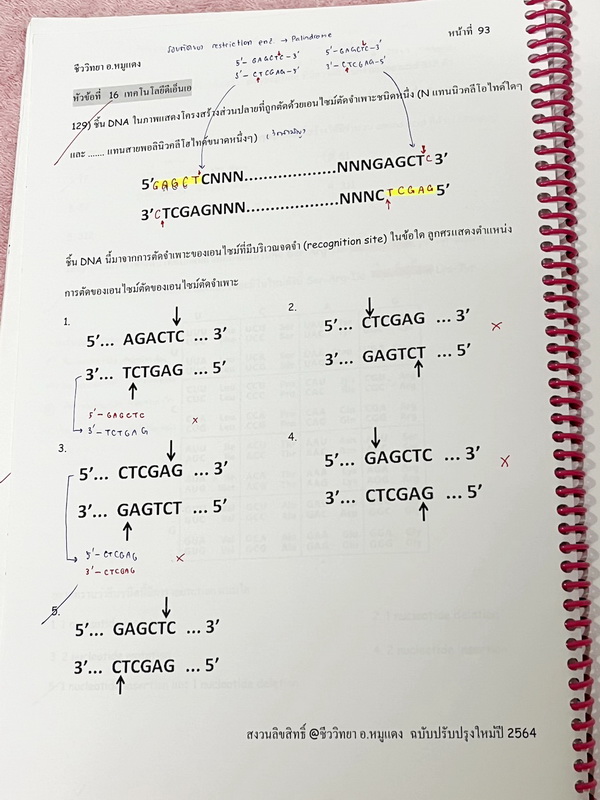 รอบทัดของ restriction enz → Palindrome
หน้าที่ 93
ชีววิทยา อ.หมูแดง
5'- GAGCTC-3' 5'- GAGCTC-3'
3'- CTCGAG-5' 3'- CTCGAG-5'
หัวข้อที่ 16 เทคโนโลยีดีเอ็นเอ
129) ชิ้น DNA ในภาพแสดงโครงสร้างส่วนปลายที่ถูกตัดด้วยเอนไซม์ตัดจำเพาะชนิดหนึ่ง (N แทนนิวคลีโอไทด์ใดๆ
และ ....... แทนสายพอลินิวคลีโอไทด์ขนาดหนึ่งๆ)
5'GAGCTCNNN...................NNNGAGCTC3'
3'CTCGAGNNN...................NNNCTCGAG5'
ชิ้น DNA นี้มาจากการตัดจำเพาะของเอนไซม์ที่มีบริเวณจดจำ (recognition site) ในข้อใด ลูกศรแสดงตำแหน่ง
การตัดของเอนไซม์ตัดของเอนไซม์ตัดจำเพาะ
1.
5'... AGACTC ... 3'
3'... TCTGAG ... 5'
5'- GAGCTC
3'- TCTGAG x
2.
5'... CTCGAG ... 3' x
3'... GAGTCT ... 5'
3.
5'... CTCGAG ... 3'
3'... GAGTCT ... 5'
5'- CTCGAG
3'- CTCGAG x
4.
5'... GAGCTC ... 3' x
3'... CTCGAG ... 5'
5.
5'... GAGCTC ... 3'
3'... CTCGAG ... 5'
สงวนลิขสิทธิ์ @ชีววิทยา อ.หมูแดง ฉบับปรับปรุงใหม่ปี 2564